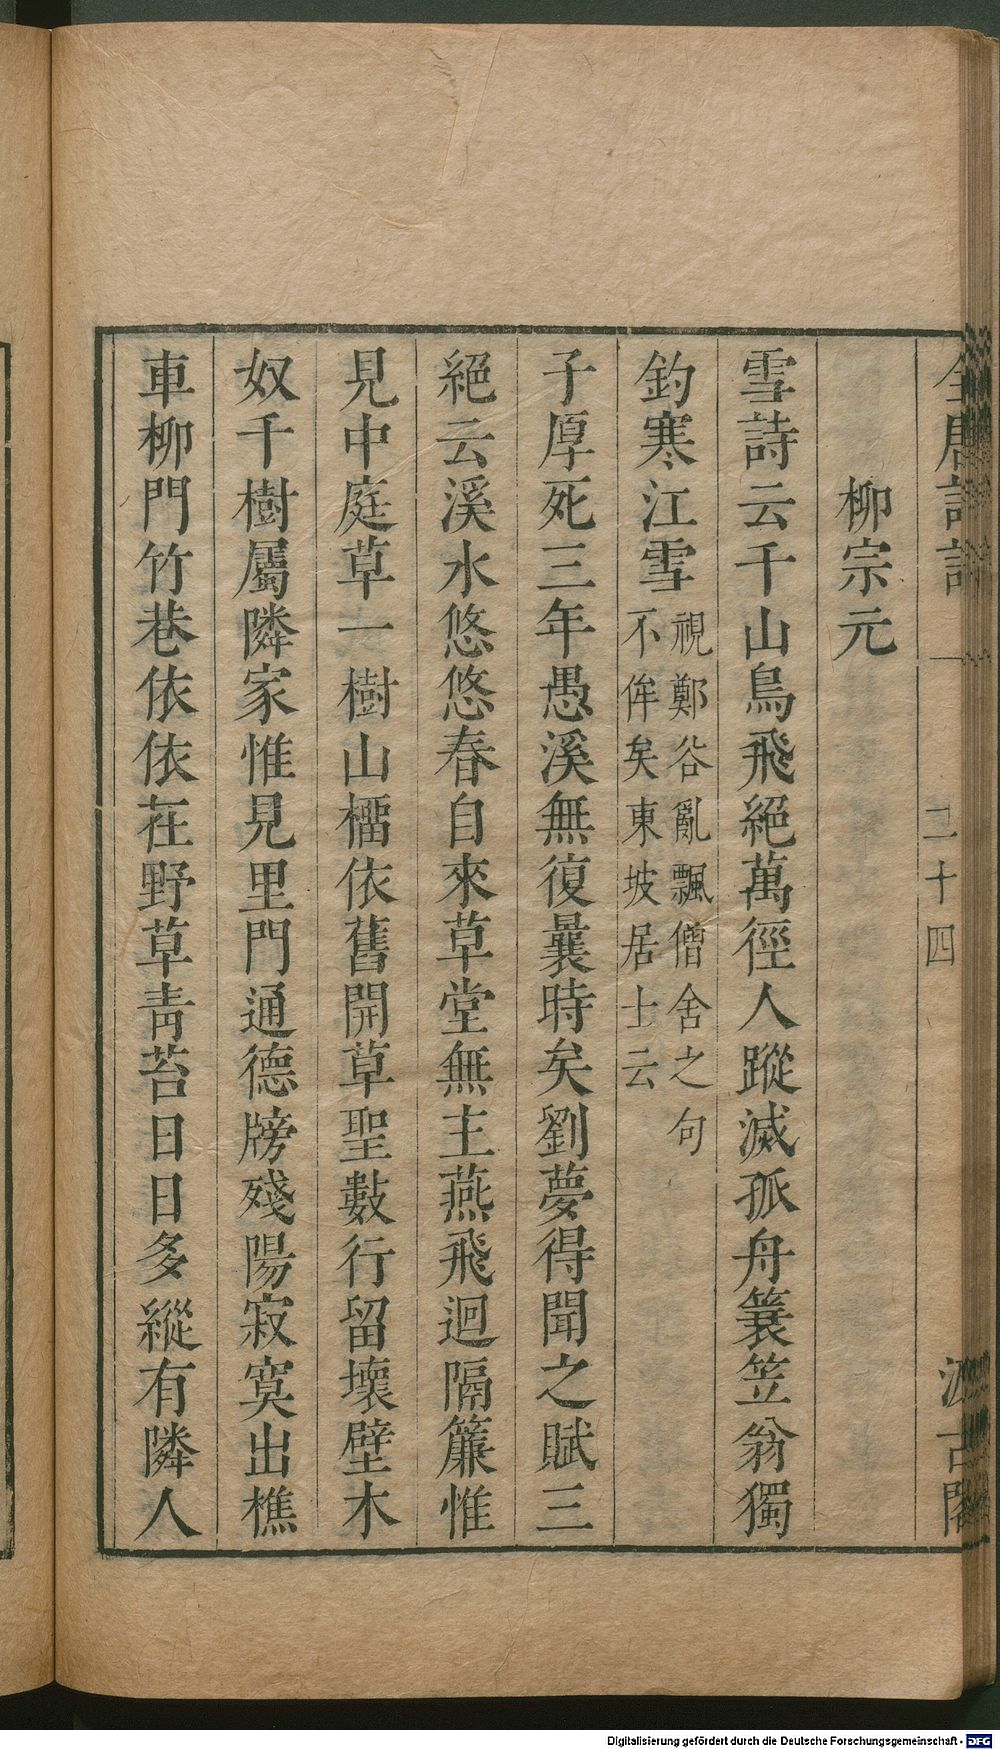 全唐詩話 二十四 汲古閣
柳宗元
雪詩云千山鳥飛絕萬徑人蹤滅孤舟簑笠翁獨
釣寒江雪視鄭谷亂飄僧舍之句
不侔矣東坡居士云
子厚死三年愚溪無復曩時矣劉夢得聞之賦三
絕云溪水悠悠春自來草堂無主燕飛迴隔簾惟
見中庭草一樹山榴依舊開草聖數行留壞壁木
奴千樹屬隣家惟見里門通德牓殘陽寂寞出樵
車柳門竹巷依依在野草青苔日日多縱有隣人
Digitalisierung gefördert durch die Deutsche Forschungsgemeinschaft - DFG